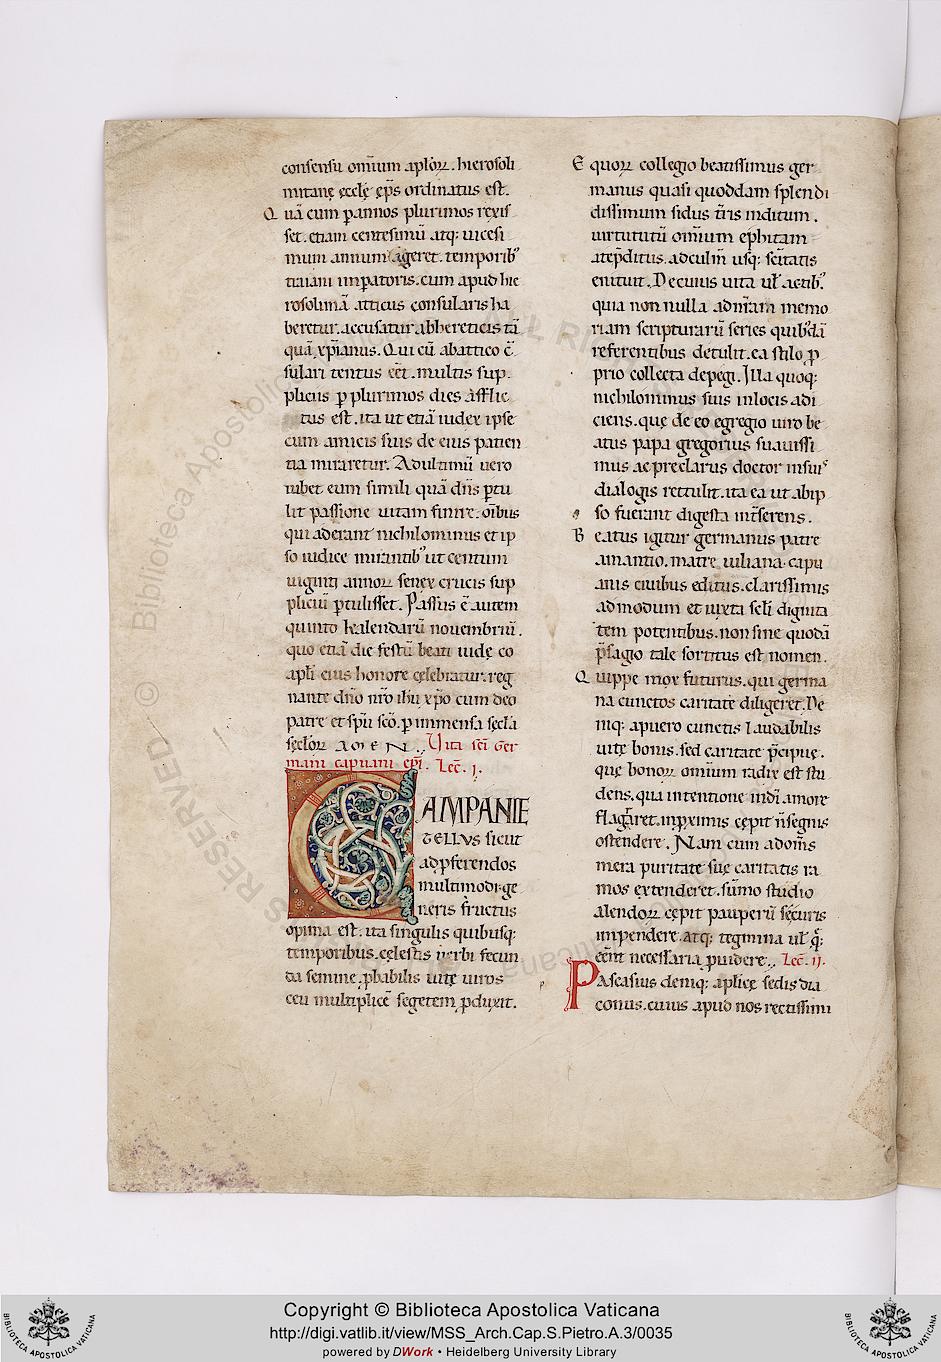 consensu om̅ium aploꝝ. hierosoli
mitanę ęcclę ep̅s ordinatus est.
Q uā cum p annos plurimos rexis
set. etiam centesimū atq: uicesi
mum annum ageret. temporib᾽
traiani imperatoris. cum apud hie
rosolimā atticus consularis ha
beretur. accusatur abhereticis tā
quā xp̅ianus. Qui cū abattico c̅
sulari tentus eēt. multis sup
pliciis p plurimos dies afflic
tus est. ita ut etiā iudex ipse
cum amicis suis de eius patien
tia miraretur. Adultimū uero
iubet eum simili quā dn̅s ptu
lit passione uitam finire. oībus
qui aderant nichilominus et ip
so iudice mirantib᾽ ut centum
uiginti annoꝝ senex crucis sup
pliciū ptulisset. Passus ē autem
quinto kalendarū nouembriū.
quo etiā die festū beati iudę co
apl̅i eius honore cęlebratur. reg
nante dn̅o nr̅o ihu xp̅o cum deo
patre et sp̅u sc̅o. p immensa sęcl̅a
sęcl̅oꝝ AMEN. Uita sc̅i Ger
mani capuani ep̅i. Lec̅. i.
CAMPANIE
TELLVS sicut
adpferendos
multimodi: ge
neris fructus
opima est. ita singulis quibusq:
temporibus. cęlestis uerbi fecun
da semine. pbabilis uitę uiros
ceu multiplicē segetem. pduxit.
E quoꝝ collegio beatissimus ger
manus quasi quoddam splendi
dissimum sidus t̅ris inditum.
uirtututū om̅ium ephitam
atep̅ditus. adculm̅ usq: sc̅itatis
enituit. De cuius uita ul̅ actib᾽
quia non nulla adnr̅am memo
riam scripturarū series quib᾽dā
referentibus detulit. ea stilo p
prio collecta depegi. Illa quoq:
nichilominus suis inlocis adi
ciens. quę de eo egregio uiro be
atus papa gregorius suauissi
mus ac preclarus doctor insuis
dialogis rettulit. ita ea ut abip
so fuerant digesta int̅serens.
B eatus igitur germanus patre
amantio. matre iuliana. capu
anis ciuibus editus. clarissimis
admodum et iuxta sc̅li dignita
tem potentibus. non sine quodā
p̅sagio tale sortitus est nomen.
Q uippe mox futurus. qui germa
na cunctos caritate diligeret. De
niq: apuero cunctis laudabilis
uitę bonis. sed caritate p̅cipuę.
quę bonoꝝ omium radix est stu
dens. qua intentione indī amore
flagraret. inpximis cępit n̅segnis
ostendere. Nam cum adom̅s
mera puritate suę caritatis ra
mos extenderet. sūmo studio
alendoꝝ cępit pauperū sęcuris
impendere. atq: tegmina ul̅ q̅:
eēnt necessaria. puidere. Lec̅. ii.
Pascasius deniq: aplicę sedis dia
conus. cuius apud nos rectissimi
© Biblioteca Apostolica Vaticana
ALL RIGHTS RESERVED
Copyright © Biblioteca Apostolica Vaticana
http://digi.vatlib.it/view/MSS_Arch.Cap.S.Pietro.A.3/0035
powered by DWork • Heidelberg University Library
BIBLIOTECA APOSTOLICA VATICANA
BIBLIOTECA APOSTOLICA VATICANA